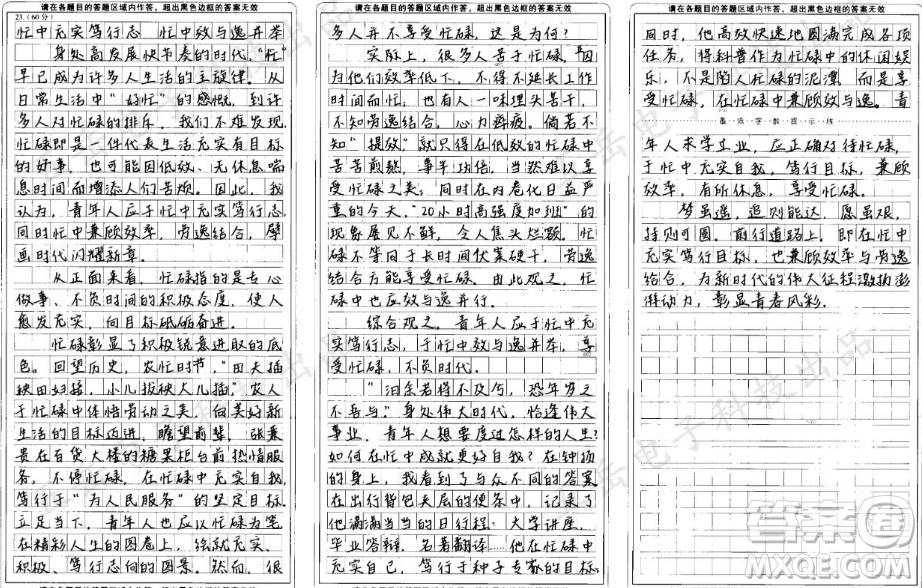 请在各题目的答题区域内作答，超出黑色边框的答案无效
23.（60分）
忙中充实笃行志 忙中效与逸并举
身处高发展快节奏的时代，“忙”
早已成为许多人生活的主旋律。从
日常生活中“好忙”的感慨，到许
多人对忙碌的排斥，我们不难发现，
忙碌即是一件代表生活充实有目标
的好事，也可能因低效、无休息喘
息时间而增添人们苦烦。因此，我
认为，青年人应于忙中充实笃行志，
同时忙中兼顾效率，劳逸结合，擘
画时代闪耀新章。
从正面来看，忙碌指的是专心
做事、不负时间的积极态度，使人
愈发充实，向目标砥砺奋进。
忙碌彰显了积极锐意进取的底
色。回望历史，农忙时节，“田夫抛
秧田妇接，小儿拔秧大儿插”，农人
于忙碌中体悟劳动之美，向美好新
生活的目标迈进，瞻望前辈，张秉
贵在百货大楼的糖果柜台前热情服
务，不停忙碌，在忙碌中充实自我，
笃行于“为人民服务”的坚定目标。
立足当下，青年人也应以忙碌为笔
在精彩人生的图卷上，绘就充实、
积极、笃行志向的图景。然而，很
请在各题目的答题区域内作答，超出黑色边框的答案无效
多人并不享受忙碌，这是为何？
实际上，很多人苦于忙碌，因
为他们效率低下，不得不延长工作
时间而忙，也有人一味埋头苦干，
不知劳逸结合，心力瘁疲。倘若不
知“提效”就只得在低效的忙碌中
苦苦煎熬，事半功倍，当然难以享
受忙碌之美；同时在内卷化日益严
重的今天，“20小时高强度加班”的
现象屡见不鲜，令人焦头烂额。忙
碌不等同于长时间伏案硬干，劳逸
结合方能享受忙碌，由此观之，忙
碌中也应效与逸并行。
综合观之，青年人应于忙中充
实笃行志，于忙中效与逸并举，享
受忙碌，不负时代。
“汩余若将不及兮，恐年岁之
不吾与”身处伟大时代，恰逢伟大
事业，青年人想要度过怎样的人生？
如何在忙中成就更好自我？在钟扬
的身上，我看到了与众不同的答案
在出行背包夹层的便条中，记录了
他满满当当的日行程：大学讲座，
毕业答辩，名著翻译……他在忙碌中
充实自己，笃行于种子专家的目标，
请在各题目的答题区域内作答，超出黑色边框的答案无效
同时，他高效快速地圆满完成各项
任务，得科普作为忙碌中的休闲娱
乐，不是陷入忙碌的泥潭，而是享
受忙碌，在忙碌中兼顾效与逸。青
年人求学立业，应正确对待忙碌，
于忙中充实自我，笃行目标，兼顾
效率，有所休息，享受忙碌。
梦虽遥，追则能达，愿虽艰，
持则可圆。前行道路上，即在忙中
充实笃行目标，也兼顾效率与劳逸
结合，为新时代的伟大征程激扬澎
湃动力，彰显青春风彩。
答案圈
MXQE.COM